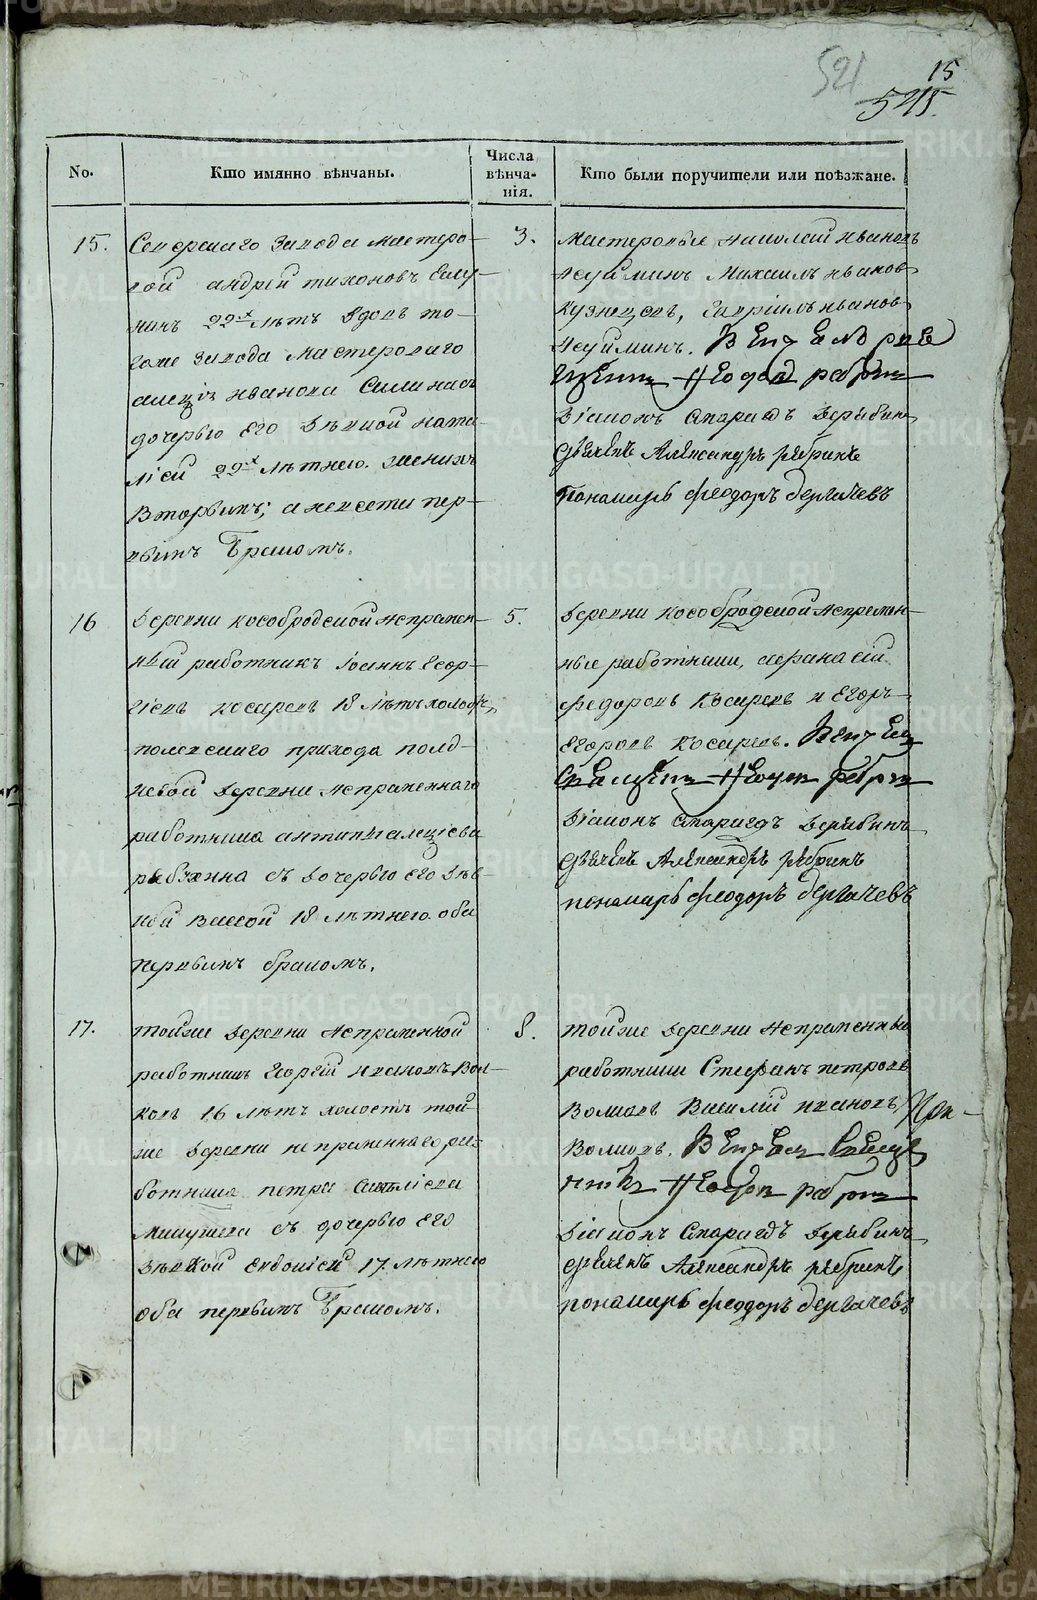 521
15
545.
No.
Кто имянно вѣнчаны.
Числа вѣнча-
нія.
Кто были поручители или поѣзжане.
15.
Северскаго завода мастеро-
вой андрей тихоновъ
22х лѣтъ вдовъ то-
гоже завода мастероваго
алексія иванова
дочерью его дѣвкой ната-
ліей 22х лѣтнею. женихъ
вторымъ; а невеста пер-
вымъ бракомъ.
3.
Мастеровые николай ивановъ
Михаилъ ивановъ
кузнецовъ, гавріилъ ивановъ
Венчалъ
рабрин
Діаконъ Дерябин
Дьячекъ Александръ рябринъ
Пономарь феодоръ дергачевъ
16
Деревни кособродской непремен-
ный работникъ Іоаннъ Геор-
гіевъ косаревъ 18 лѣтъ холостъ,
полевскаго прихода полд-
невой деревни непременнаго
работника антипы алексіева
съ дочерью его дѣв-
кой вассой 18 лѣтнею. оба
первымъ бракомъ.
5.
Деревни кособродской непремен-
ные работники, афанасій
федоровъ косаревъ и Егоръ
Егоровъ косаревъ.
Діаконъ Дерябинъ
Дьячекъ Александръ рябринъ
пономарь феодоръ дергачевъ
17.
тойже деревни непременной
работникъ Георгій ивановъ Вол-
ковъ 16 лѣтъ холостъ той-
же деревни непременнаго ра-
ботника петра савеліева
съ дочерью его
дѣвкой евдокіей 17. лѣтнею
оба первымъ бракомъ.
8.
тойже деревни непременные
работники Стефанъ петровъ
Волковъ Василій ивановъ
Волковъ.
Діаконъ Дерябинъ
Дьячекъ Александръ рябринъ
пономарь феодоръ дергачевъ
METRIKI.GASO-URAL.RU